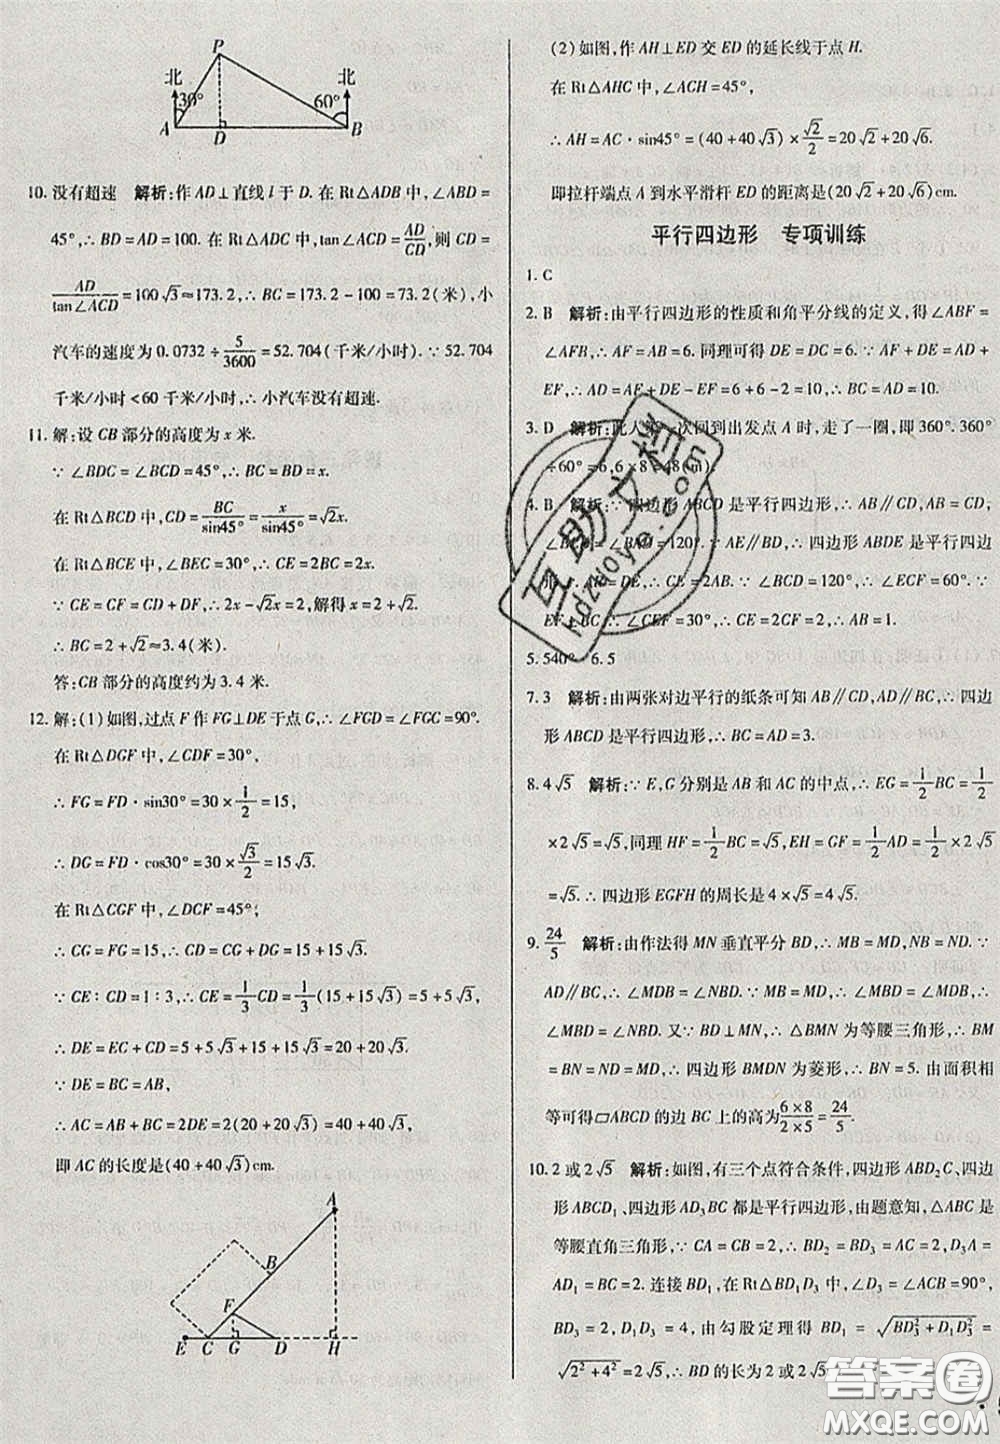 P
北
北
30°
60°
A
D
B
10. 没有超速 解析:作AD⊥直线l于D. 在Rt△ADB中,∠ABD=
45°,∴BD=AD=100. 在Rt△ADC中,tan∠ACD=AD/CD,∴CD=
AD/tan∠ACD=100√3≈173.2,∴BC=173.2-100=73.2(米),小
汽车的速度为0.0732÷5/3600=52.704(千米/小时). ∵52.704
千米/小时<60千米/小时,∴小汽车没有超速.
11. 解:设CB部分的高度为x米.
∵∠BDC=∠BCD=45°,∴BC=BD=x.
在Rt△BCD中,CD=BC/sin45°=x/sin45°=√2x.
在Rt△BCE中,∠BEC=30°,∴CE=2BC=2x.
∵CE=CF=CD+DF,∴2x-√2x=2,解得x=2+√2.
∴BC=2+√2≈3.4(米).
答:CB部分的高度约为3.4米.
12. 解:(1)如图,过点F作FG⊥DE于点G,∴∠FGD=∠FGC=90°.
在Rt△DGF中,∠CDF=30°,
∴FG=FD·sin30°=30×1/2=15,
∴DG=FD·cos30°=30×√3/2=15√3.
在Rt△CGF中,∠DCF=45°,
∴CG=FG=15,∴CD=CG+DG=15+15√3.
∵CE:CD=1:3,∴CE=1/3CD=1/3(15+15√3)=5+5√3,
∴DE=EC+CD=5+5√3+15+15√3=20+20√3.
∵DE=BC=AB,
∴AC=AB+BC=2DE=2(20+20√3)=40+40√3,
即AC的长度是(40+40√3)cm.
A
B
F
E
C
G
D
H
(2)如图,作AH⊥ED交ED的延长线于点H.
在Rt△AHC中,∠ACH=45°,
∴AH=AC·sin45°=(40+40√3)×√2/2=20√2+20√6.
即拉杆端点A到水平滑杆ED的距离是(20√2+20√6)cm.
平行四边形 专项训练
1. C
2. B 解析:由平行四边形的性质和角平分线的定义,得∠ABF=
∠AFB,∴AF=AB=6. 同理可得DE=DC=6. ∵AF+DE=AD+
EF,∴AD=AF+DE-EF=6+6-2=10,∴BC=AD=10.
3. D 解析:此人第一次回到出发点A时,走了一圈,即360°. 360°
÷60°=6,6×8=48(m)
4. B 解析:∵四边形ABCD是平行四边形,∴AB∥CD,AB=CD,
∠BCD=∠BAD=120°. ∵AE∥BD,∴四边形ABDE是平行四边
形,∴AB=DE,∴CE=2AB. ∵∠BCD=120°,∴∠ECF=60°. ∵
EF⊥BC,∴∠CEF=30°,∴CE=2CF=2,∴AB=1.
5. 540° 6. 5
7. 3 解析:由两张对边平行的纸条可知AB∥CD,AD∥BC,∴四边
形ABCD是平行四边形,∴BC=AD=3.
8. 4√5 解析:∵E,G分别是AB和AC的中点,∴EG=1/2BC=1/2
×2√5=√5,同理HF=1/2BC=√5,EH=GF=1/2AD=1/2×2√5
=√5. ∴四边形EGFH的周长是4×√5=4√5.
9. 24/5 解析:由作法得MN垂直平分BD,∴MB=MD,NB=ND. ∵
AD∥BC,∴∠MDB=∠NBD. ∵MB=MD,∴∠MBD=∠MDB,∴
∠MBD=∠NBD. 又∵BD⊥MN,∴△BMN为等腰三角形,∴BM
=BN=ND=MD,∴四边形BMDN为菱形,∴BN=5. 由面积相
等可得▱ABCD的边BC上的高为6×8/2×5=24/5.
10. 2或2√5 解析:如图,有三个点符合条件,四边形ABD₂C、四边
形ABCD₁、四边形AD₃BC都是平行四边形,由题意知,△ABC是
等腰直角三角形,∵CA=CB=2,∴BD₂=BD₃=AC=2,D₃A=
AD₁=BC=2. 连接BD₁,在Rt△BD₃D₁中,∠D₃=∠ACB=90°,
BD₃=2,D₁D₃=4,由勾股定理得BD₁=√(BD₃²+D₁D₃²)=
√(2²+4²)=2√5,∴BD的长为2或2√5.
互助文档
Hdzuoye.com
答案圈
MXQE.COM